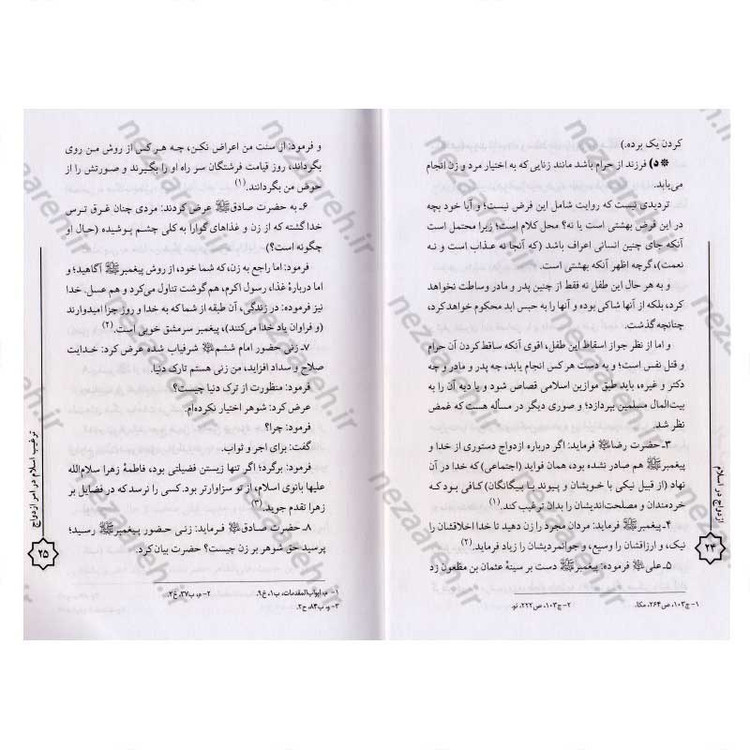 کردن یک برده.)
❊ د) فرزند از حرام باشد مانند زنایی که به اختیار مرد و زن انجام
می‌یابد.
تردیدی نیست که روایت شامل این فرض نیست؛ و آیا خود بچه
در این فرض بهشتی است یا نه؟ محل کلام است؛ زیرا محتمل است
آنکه جای چنین انسانی اعراف باشد (که آنجا نه عذاب است و نه
نعمت)، گرچه اظهر آنکه بهشتی است.
و به هر حال این طفل نه فقط از چنین پدر و مادر وساطت نخواهد
کرد، بلکه از آنها شاکی بوده و آنها را به حبس ابد محکوم خواهد کرد،
چنانچه گذشت.
و اما از نظر جواز اسقاط این طفل، اقوی آنکه ساقط کردن آن حرام
و قتل نفس است؛ و به دست هر کس انجام یابد، چه پدر و مادر و چه
دکتر و غیره، باید طبق موازین اسلامی قصاص شود و یا دیه آن را به
بیت‌المال مسلمین بپردازد؛ و صوری دیگر در مسأله هست که غمض
نظر شد.
۳ـ حضرت رضا فرماید: اگر درباره ازدواج دستوری از خدا و
پیغمبرﷺ هم صادر نشده بود، همان فواید (اجتماعی) که خدا در آن
نهاد (از قبیل نیکی با خویشان و پیوند با بیگانگان) کافی بود که
خردمندان و مصلحت‌اندیشان را بدان ترغیب کند. (۱)
۴ـ پیغمبرﷺ فرماید: مردان مجرد را زن دهید تا خدا اخلاقشان را
نیک، و ارزاقشان را وسیع، و جوانمردیشان را زیاد فرماید. (۲)
۵ـ علی فرموده: پیغمبرﷺ دست بر سینهٔ عثمان بن مظعون زد
۱- ج۱۰۳، ص۲۶۴، مکا.
۲- ج۱۰۳، ص۲۲۲، نو.
ازدواج در اسلام
۲۴
و فرمود: از سنت من اعراض نکن، چه هر کس از روش من روی
بگرداند، روز قیامت فرشتگان سر راه او را بگیرند و صورتش را از
حوض من بگردانند. (۱)
۶ـ به حضرت صادق عرض کردند: مردی چنان غرق ترس
خدا گشته که از زن و غذاهای گوارا به کلی چشم پوشیده (حال او
چگونه است؟)
فرمود: اما راجع به زن، که شما خود، از روش پیغمبرﷺ آگاهید؛ و
اما دربارهٔ غذا، رسول اکرم، هم گوشت تناول می‌کرد و هم عسل. خدا
نیز فرموده: در زندگی، آن طبقه از شما که به خدا و روز جزا امیدوارند
(و فراوان یاد خدا می‌کنند)، پیغمبر سرمشق خوبی است. (۲)
۷ـ زنی حضور امام ششم شرفیاب شده عرض کرد: خدایت
صلاح و سداد افزاید، من زنی هستم تارک دنیا.
فرمود: منظورت از ترک دنیا چیست؟
عرض کرد: شوهر اختیار نکرده‌ام.
فرمود: چرا؟
گفت: برای اجر و ثواب.
فرمود: برگرد؛ اگر تنها زیستن فضیلتی بود، فاطمهٔ زهرا سلام‌الله
علیها بانوی اسلام، از تو سزاوارتر بود. کسی را نرسد که در فضایل بر
زهرا تقدم جوید. (۳)
۸ـ حضرت صادق فرماید: زنی حضور پیغمبرﷺ رسید؛
پرسید حق شوهر بر زن چیست؟ حضرت بیان کرد.
۱- م، ابواب‌المقدمات، ب۱، ح۶.
۲- م، ب۳۷، ح۲.
۳- و، ب۸۴، ح۲.
ترغیب اسلام در امر ازدواج
۲۵
nezaareh.ir